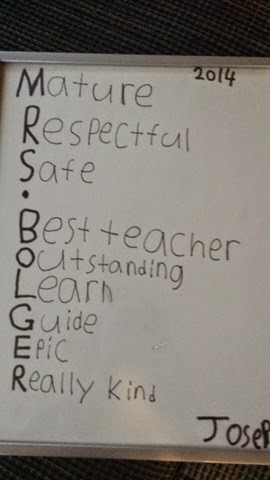 2014
Mature
Respectful
Safe
.
Best teacher
Outstanding
Learn
Guide
Epic
Really kind
Josep